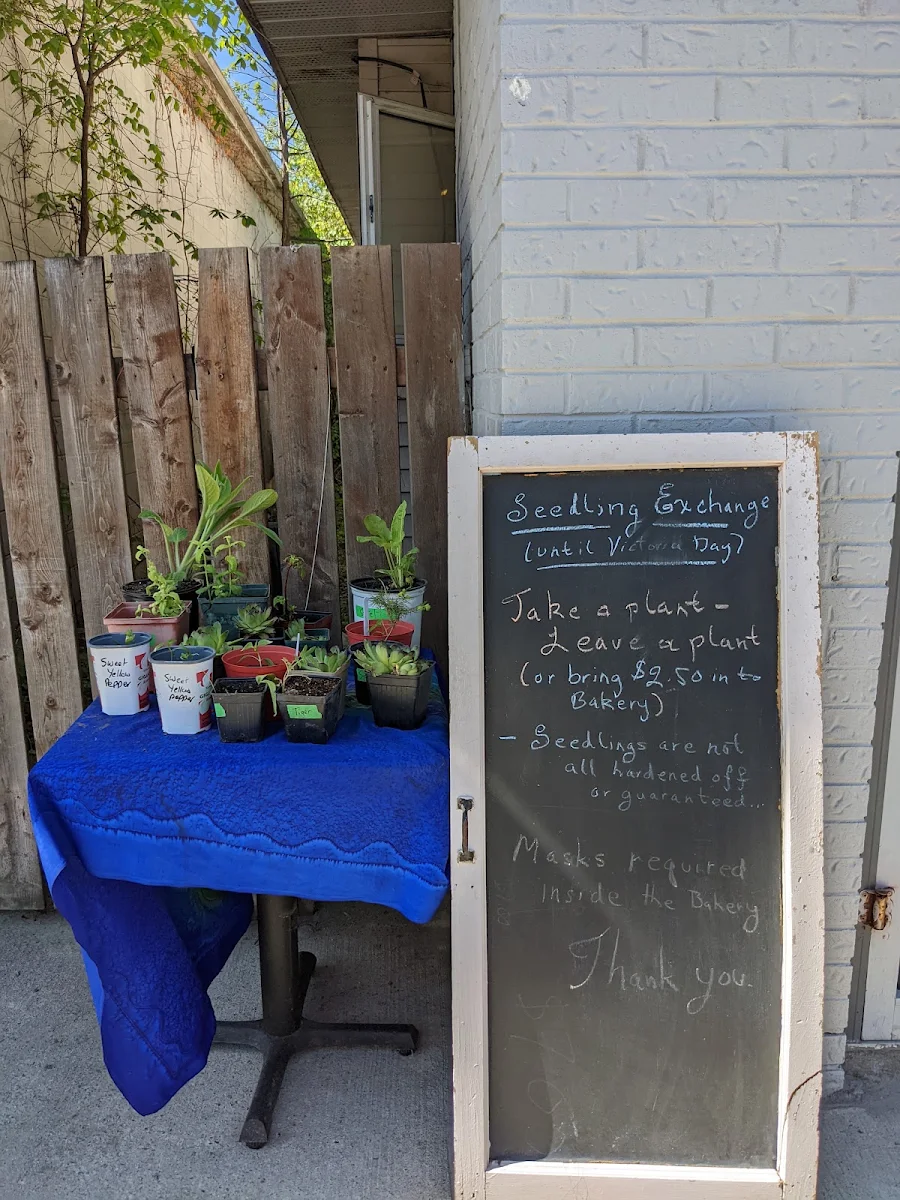 Seedling Exchange
(until Victoria Day)
Take a plant -
Leave a plant
(or bring $2.50 in to
Bakery)
- Seedlings are not
all hardened off
or guaranteed...
Masks required
Inside the Bakery
Thank you.
Sweet
Yellow
Pepper
Sweet
Yellow
Pepper
Tiger